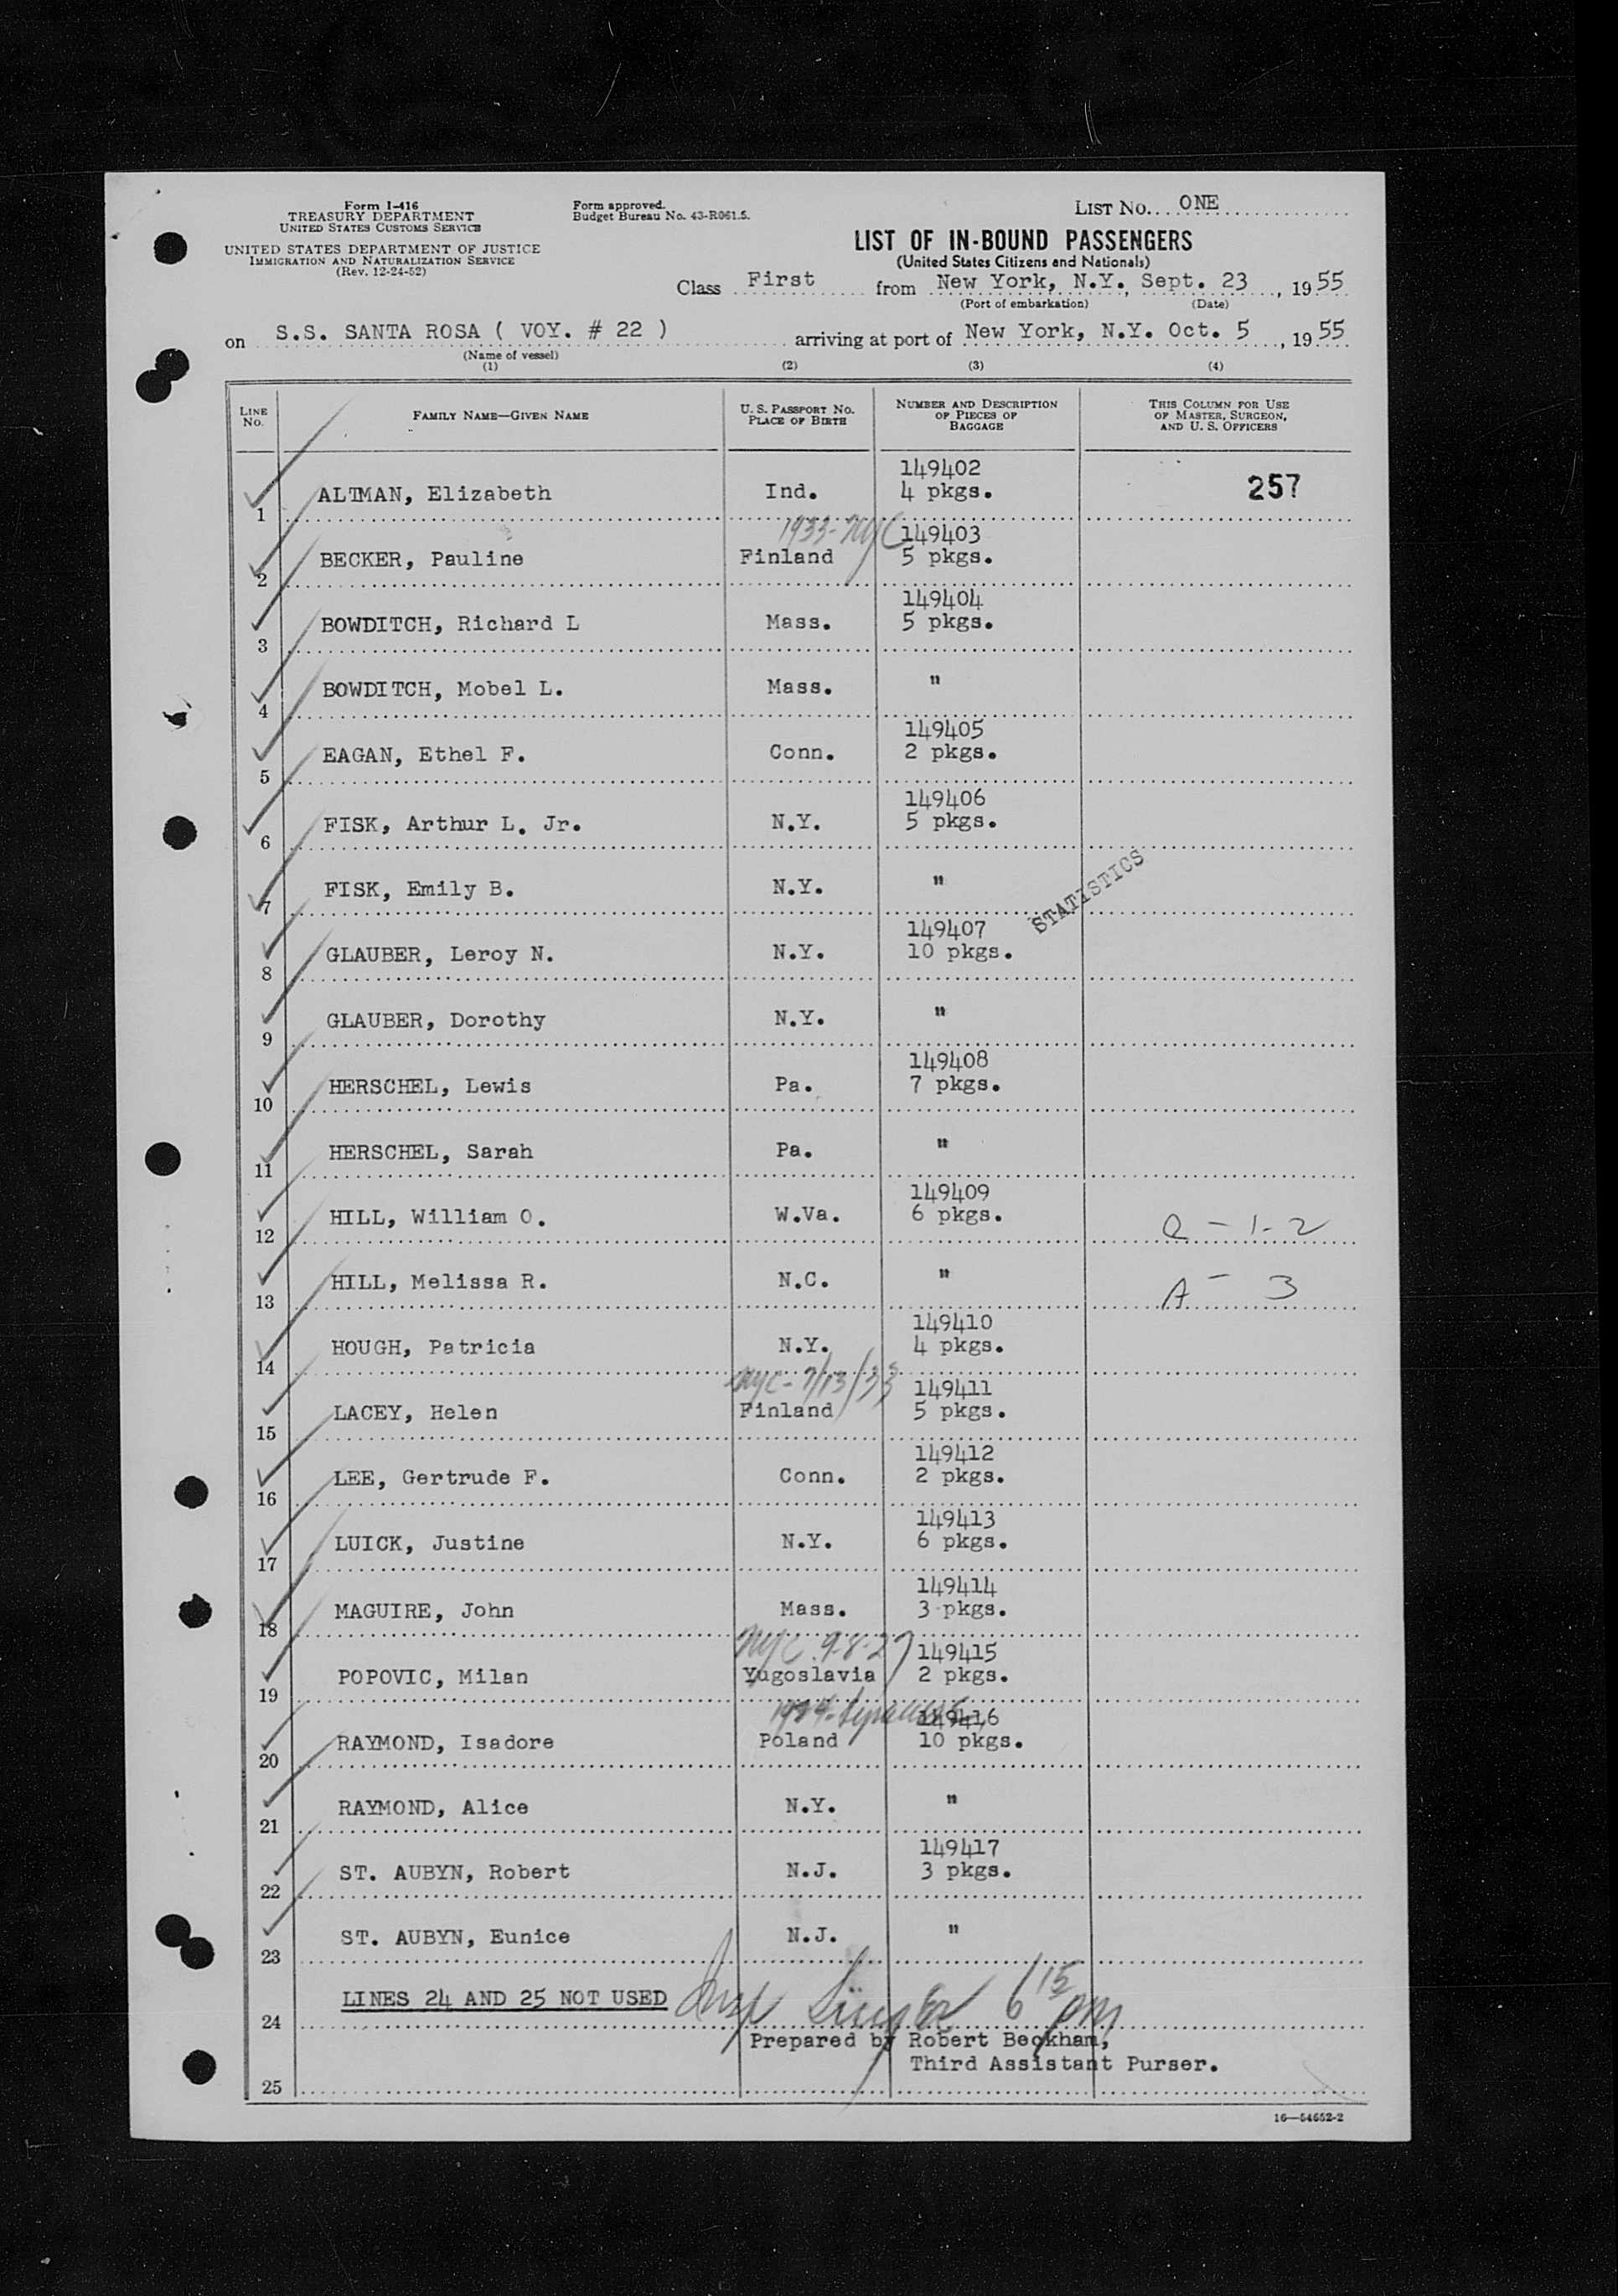 Form I-416
TREASURY DEPARTMENT
UNITED STATES CUSTOMS SERVICE
UNITED STATES DEPARTMENT OF JUSTICE
IMMIGRATION AND NATURALIZATION SERVICE
(Rev. 12-24-52)
Form approved.
Budget Bureau No. 43-R061.5.
LIST NO. ONE
LIST OF IN-BOUND PASSENGERS
(United States Citizens and Nationals)
Class First from New York, N.Y., Sept. 23, 1955
(Port of embarkation) (Date)
on S.S. SANTA ROSA ( VOY. # 22 ) arriving at port of New York, N.Y. Oct. 5, 1955
(Name of vessel)
(1) (2) (3) (4)
LINE NO. FAMILY NAME—GIVEN NAME U. S. PASSPORT NO. PLACE OF BIRTH NUMBER AND DESCRIPTION OF PIECES OF BAGGAGE THIS COLUMN FOR USE OF MASTER, SURGEON, AND U. S. OFFICERS
149402
1 ALTMAN, Elizabeth Ind. 4 pkgs. 257
1933-NYC 149403
2 BECKER, Pauline Finland 5 pkgs.
149404
3 BOWDITCH, Richard L Mass. 5 pkgs.
4 BOWDITCH, Mobel L. Mass. "
149405
5 EAGAN, Ethel F. Conn. 2 pkgs.
149406
6 FISK, Arthur L. Jr. N.Y. 5 pkgs.
7 FISK, Emily B. N.Y. "
STATISTICS
149407
8 GLAUBER, Leroy N. N.Y. 10 pkgs.
9 GLAUBER, Dorothy N.Y. "
149408
10 HERSCHEL, Lewis Pa. 7 pkgs.
11 HERSCHEL, Sarah Pa. "
149409
12 HILL, William O. W.Va. 6 pkgs. Q - 1-2
13 HILL, Melissa R. N.C. " A - 3
149410
14 HOUGH, Patricia N.Y. 4 pkgs.
NYC - 7/13/33 149411
15 LACEY, Helen Finland 5 pkgs.
149412
16 LEE, Gertrude F. Conn. 2 pkgs.
149413
17 LUICK, Justine N.Y. 6 pkgs.
149414
18 MAGUIRE, John Mass. 3 pkgs.
NYC 9-8-27 149415
19 POPOVIC, Milan Yugoslavia 2 pkgs.
Syracuse 149416
20 RAYMOND, Isadore Poland 10 pkgs.
21 RAYMOND, Alice N.Y. "
149417
22 ST. AUBYN, Robert N.J. 3 pkgs.
23 ST. AUBYN, Eunice N.J. "
24 LINES 24 AND 25 NOT USED Insp 6 15 pm
Prepared by Robert Beckham,
Third Assistant Purser.
25
16—54652-2